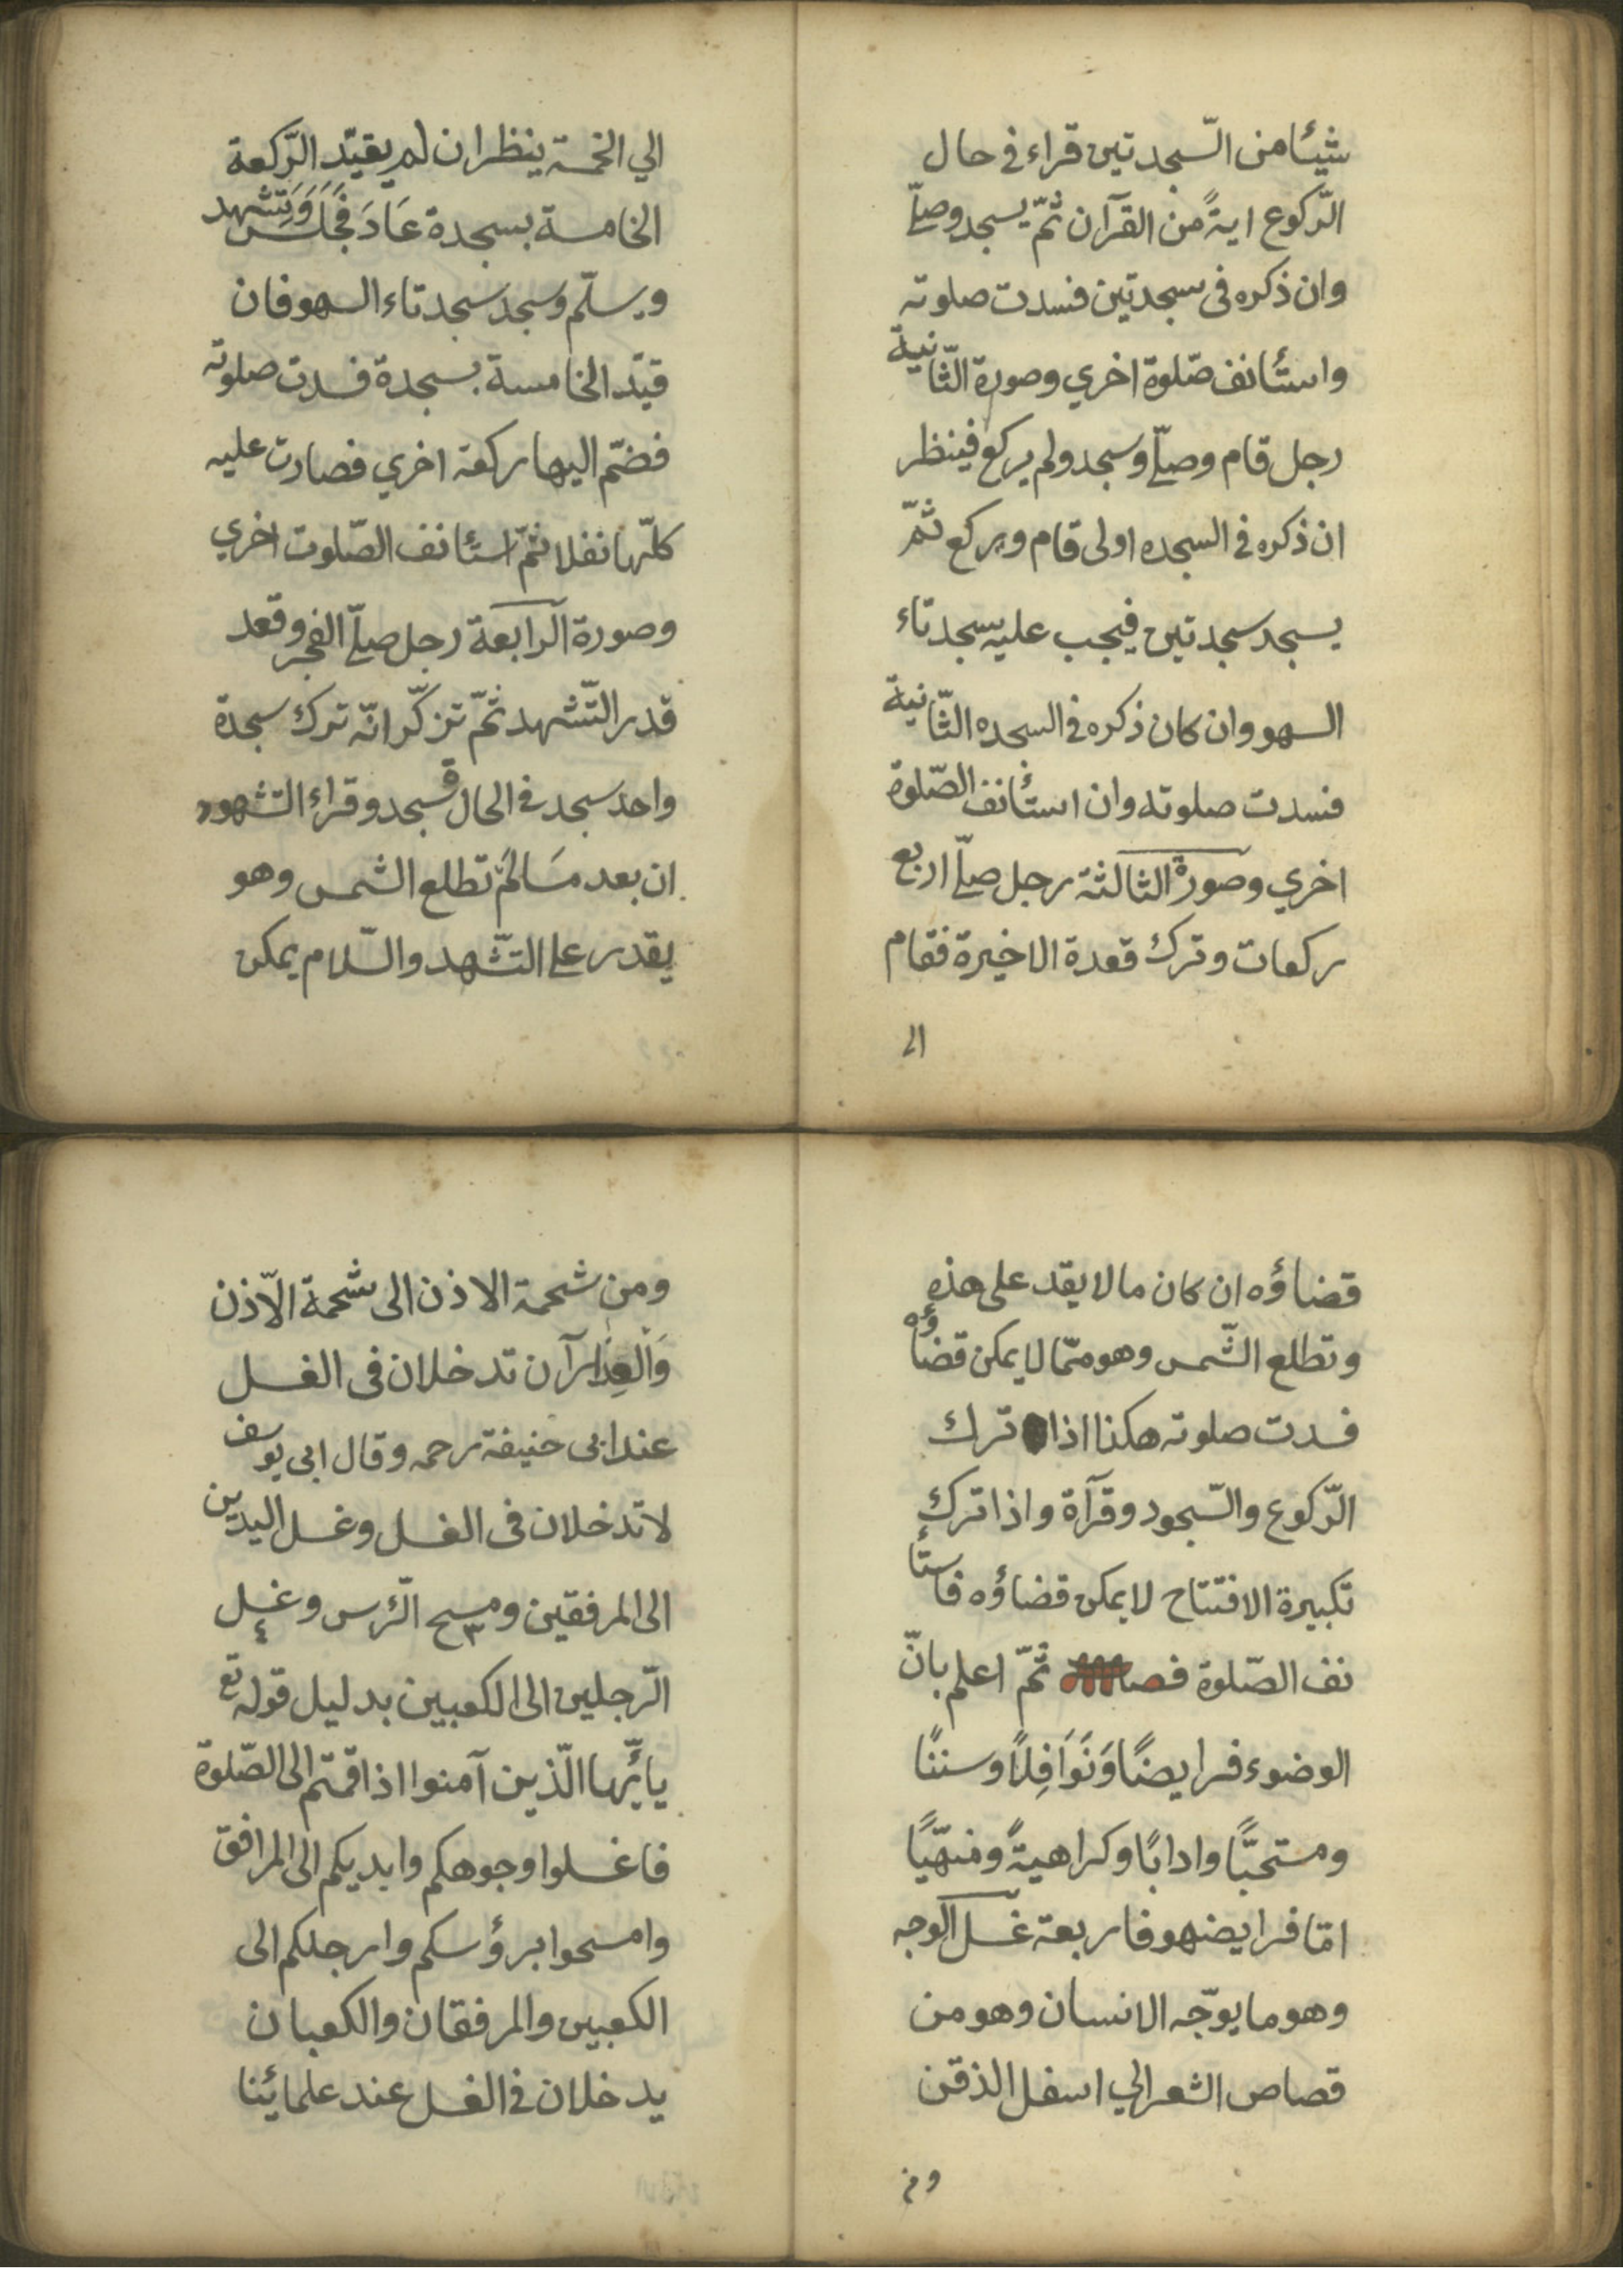 شيئا من السّجدتين قراء في حال
الرّكوع اية من القرآن ثمّ يسجد وصلّي
وان ذكره فى سجدتين فسدت صلوته
واستأنف صّلوة اخري وصورة الثّانية
رجل قام وصلّي وسجد ولم يركع فينظر
ان ذكره فى السجده اولى قام ويركع ثمّ
يسجد سجدتين فيجب عليه سجدتاء
السهو وان كان ذكره فى السجده الثّانية
فسدت صلوته وان استأنف الصّلوة
اخري وصورة الثالثة رجل صلّي اربع
ركعات وترك قعدة الاخيرة فقام
الي
الي الخمسة ينظر ان لم يقيّد الرّكعة
الخامسة بسجدة عَادَ فَجَلَسَ وَتَشهد
ويسلّم وسجد سجدتاء السهو فان
قيّد الخامسة بسجدة فسدت صلوته
فضّم اليها ركعة اخري فصارت عليه
كلّها نفلا ثمّ استأنف الصّلوت اخري
وصورة الرابعة رجل صلّي الفجر وقعد
قدر التّشهد ثمّ تزكّر انّه ترك سجدة
واحد سجد فى الحال فسجد وقراء التشهود
ان بعد مَالَمْ تطلع الشمس وهو
يقدر على التّشهد والسّلام يمكن
قضاؤه ان كان مالا يقد على هذه
وتطلع الشّمس وهو ممّا لا يمكن قضاؤه
فسدت صلوته هكذا اذا ترك
الرّكوع والسّجود وقرآة واذا ترك
تكبيرة الافتتاح لا يمكن قضاؤه فاستأ
نف الصّلوة ثمّ اعلم بانّ
الوضوء فرايضًا وَنَوَافِلًا وسننًا
ومستحبًّا وادابًا وكراهيةً ومنهّيًا
امّا فرايضهو فاربعة غسل الوجه
وهو ما يوّجه الانسان وهو من
قصاص الشعر الي اسفل الذقن
ومن
ومن شحمة الاذن الى شحمة الاّذن
وَالْعِذارآن تدخلان فى الغسل
عند ابى حنيفة رحمه وقال ابى يوسف
لا تدخلان فى الغسل وغسل اليدين
الى المرفقين ومسح الرّس وغسل
٣ ٤
الرّجلين الى الكعبين بدليل قوله تع
يا أيّها الّذين آمنوا اذا قمتم الى الصّلوة
فاغسلوا وجوهكم وايديكم الى المرافق
وامسحوا برؤسكم وارجلكم الى
الكعبين والمرفقان والكعبان
يدخلان فى الغسل عند علمائنا